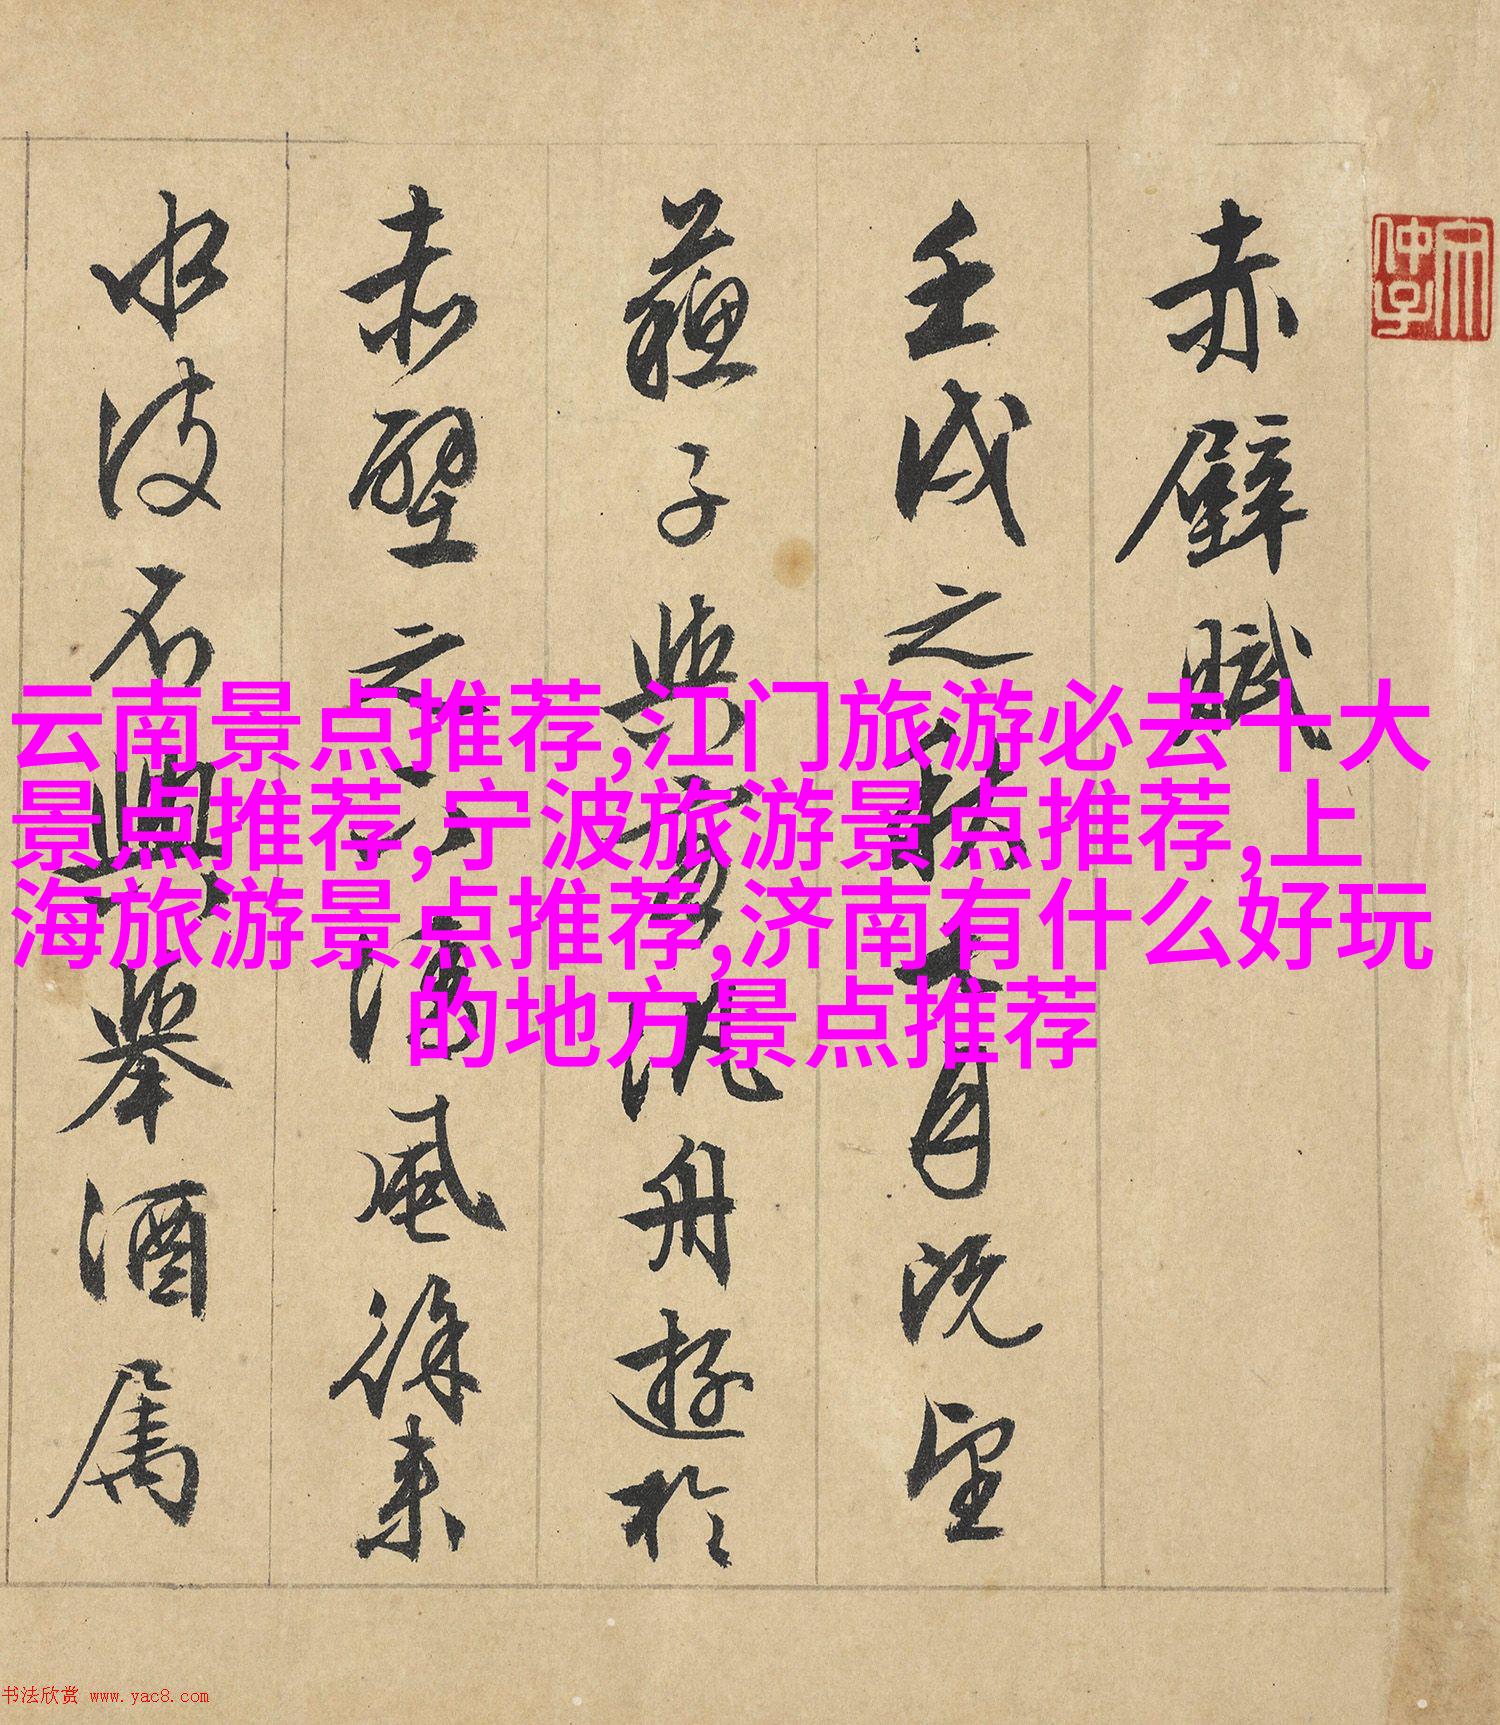 赤壁賦
壬戌之秋七月既望
蘇子與客泛舟遊於
赤壁之下清風徐来
水波不興舉酒属
云南景点推荐,江门旅游必去十大
景点推荐,宁波旅游景点推荐,上
海旅游景点推荐,济南有什么好玩
的地方景点推荐
书法欣赏 www.yac8.com